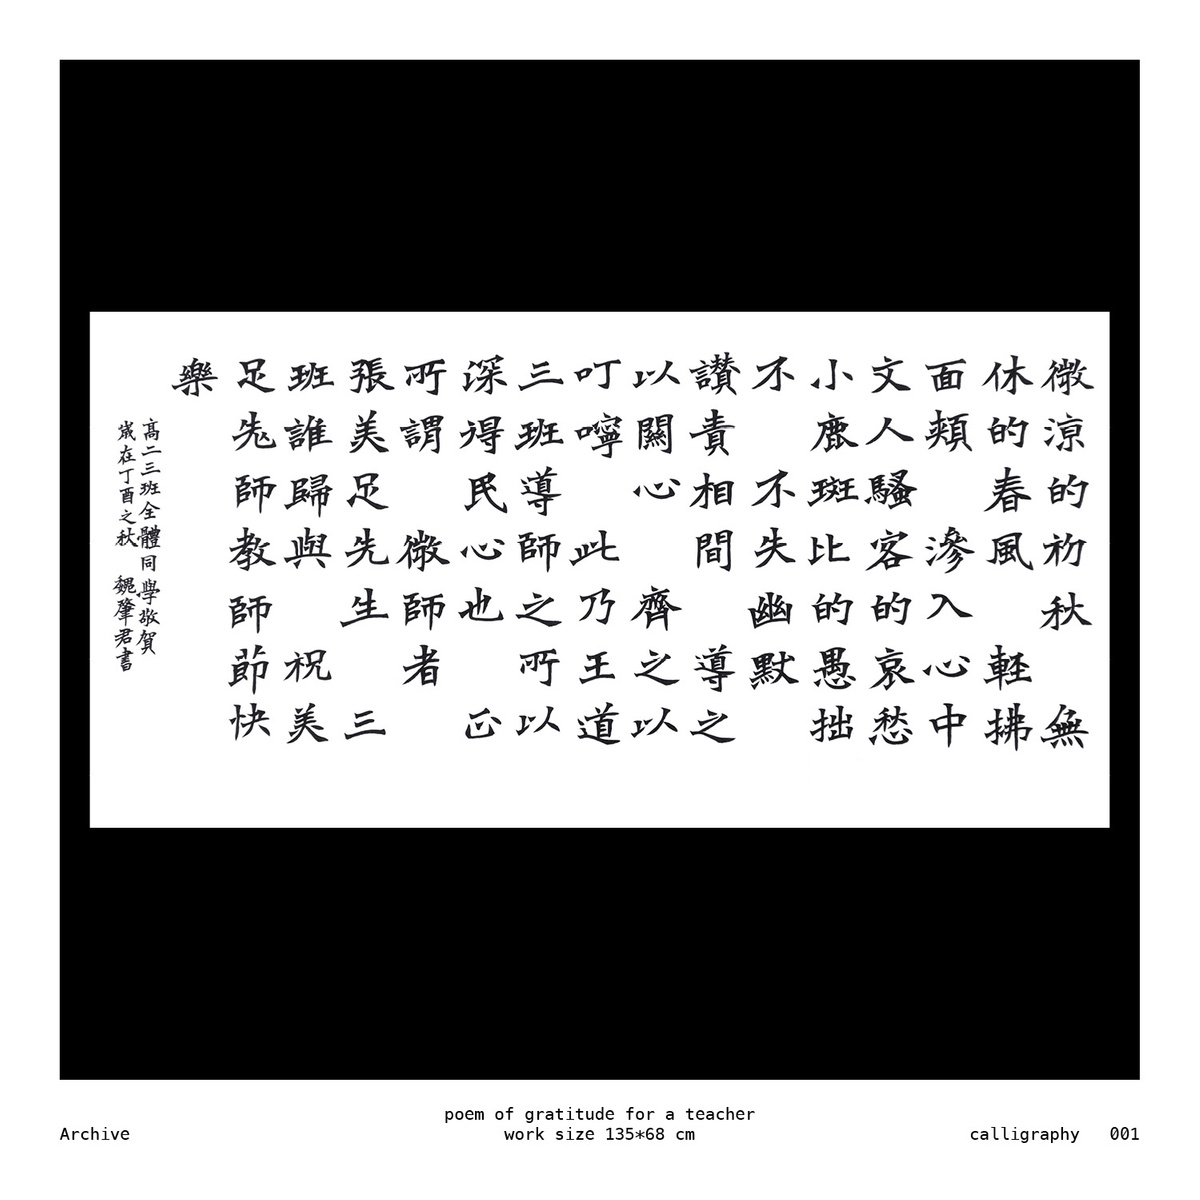 微涼的初秋 無
休的春風 軽拂
面頰 滲入心中
文人騷客的哀愁
小鹿斑比的愚拙
不 不失幽默
讚責相間 導之
以關心 齊之以
叮嚀 此乃王道
三班導師之所以
深得民心也 正
所謂 微師者
張美足先生 三
班誰歸與 祝美
足先師教師節快
樂
高二三班全體同學敬賀
歲在丁酉之秋 魏肇君書
poem of gratitude for a teacher
Archive work size 135*68 cm calligraphy 001